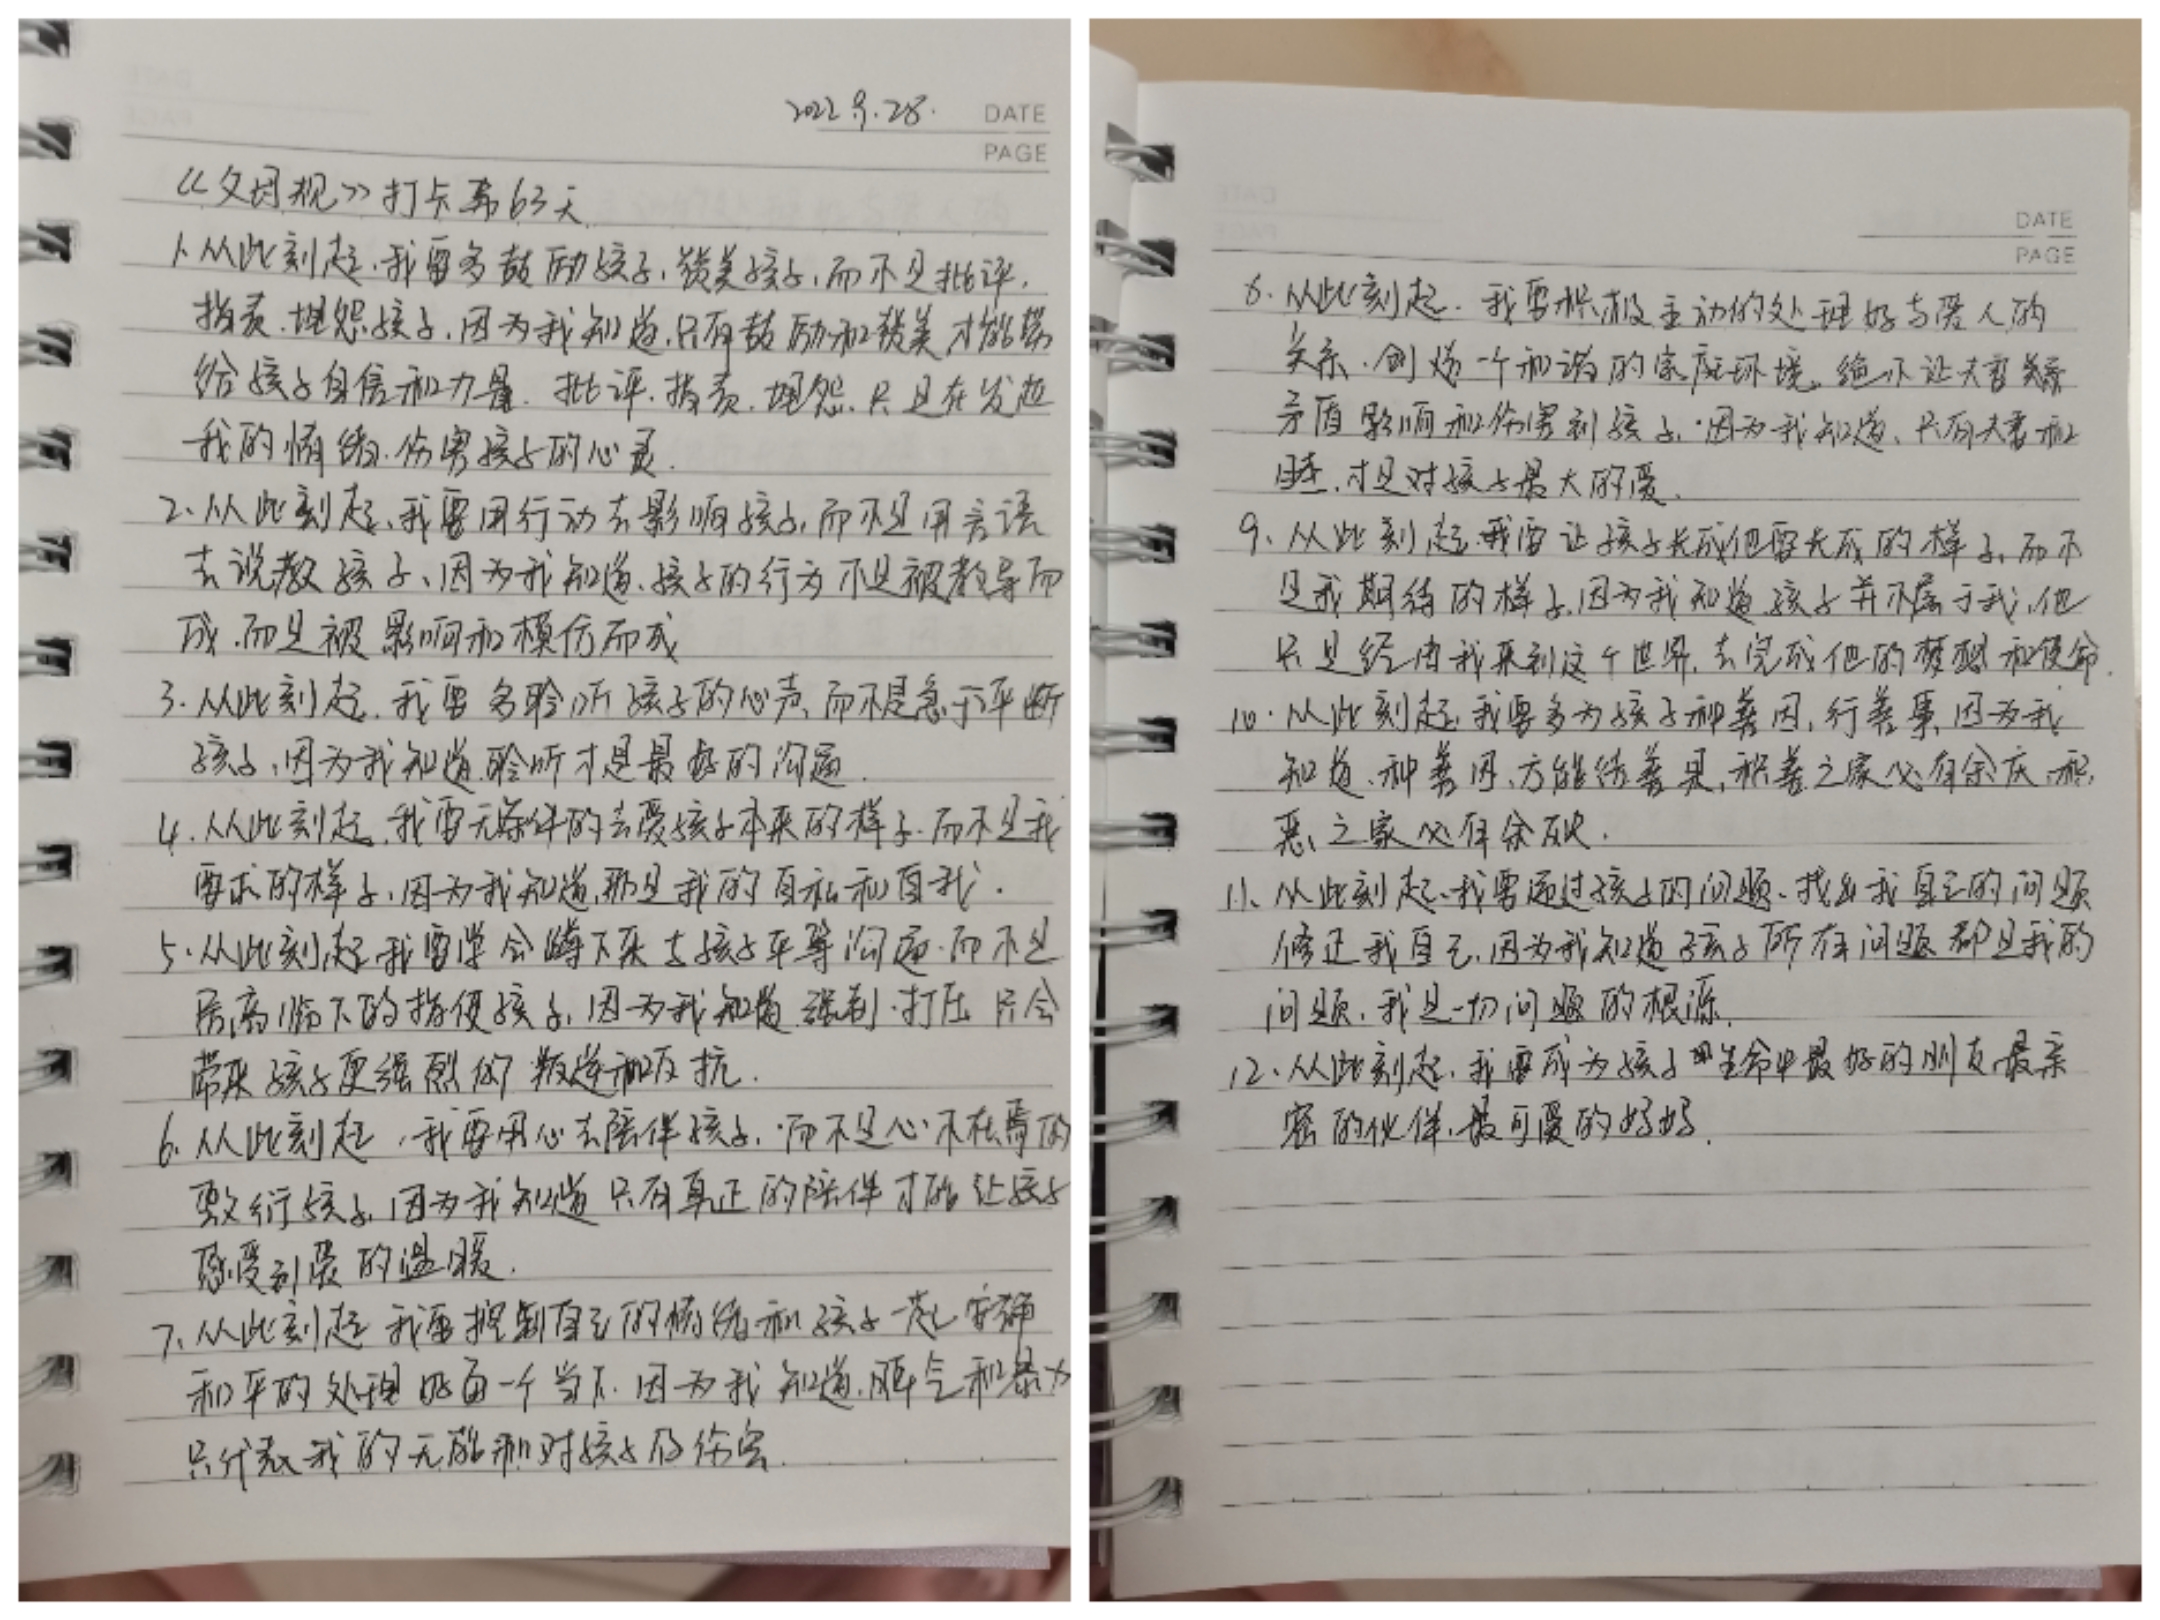 2022.9.28. DATE
PAGE
《父母规》打卡第63天
1、从此刻起、我要多鼓励孩子,赞美孩子,而不是批评、
指责、埋怨孩子,因为我知道,只有鼓励和赞美才能带
给孩子自信和力量、批评、指责、埋怨、只是在发泄
我的情绪、伤害孩子的心灵.
2、从此刻起、我要用行动去影响孩子,而不是用言语
去说教孩子、因为我知道、孩子的行为不是被教导而
成、而是被影响和模仿而成
3.从此刻起、我要多聆听孩子的心声、而不是急于评断
孩子、因为我知道聆听才是最好的沟通.
4.从此刻起、我要无条件的去爱孩子本来的样子、而不是我
要求的样子、因为我知道、那是我的自私和自我.
5.从此刻起我要学会蹲下来与孩子平等沟通.而不是
居高临下的指使孩子,因为我知道强制.打压只会
带来孩子更强烈的叛逆和反抗.
6.从此刻起,我要用心去陪伴孩子,而不是心不在焉的
敷衍孩子,因为我知道只有真正的陪伴才能让孩子
感受到爱的温暖.
7、从此刻起我要控制自己的情绪和孩子一起安静
和平的处理好每一个当下.因为我知道,脾气和暴力
只代表我的无能和对孩子的伤害.
DATE
PAGE
8.从此刻起.我要积极主动的处理好与爱人的
关系.创造一个和谐的家庭环境,绝不让夫妻关系
矛盾影响和伤害到孩子.因为我知道、只有夫妻和
睦,才是对孩子最大的爱.
9、从此刻起、我要让孩子长成他要长成的样子,而不
是我期待的样子,因为我知道孩子并不属于我,他
只是经由我来到这个世界,去完成他的梦想和使命.
10.从此刻起,我要多为孩子种善因,行善事,因为我
知道、种善因、方能结善果,积善之家必有余庆、积
恶之家必有余殃.
11、从此刻起、我要通过孩子的问题、找出我自己的问题
修正我自己,因为我知道孩子所有问题都是我的
问题,我是一切问题的根源.
12、从此刻起、我要成为孩子生命中最好的朋友,最亲
密的伙伴,最可爱的妈妈.